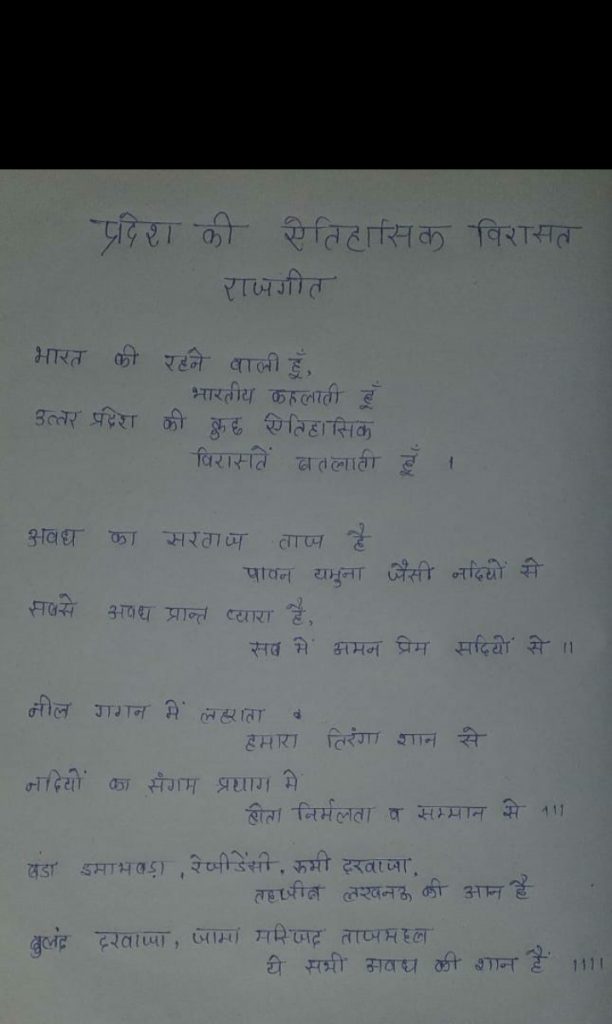 प्रदेश की ऐतिहासिक विरासत
राजगीत
भारत की रहने वाली हूँ,
भारतीय कहलाती हूँ
उत्तर प्रदेश की कुछ ऐतिहासिक
विरासतें बतलाती हूँ ।
अवध का सरताज ताज है
पावन यमुना जैसी नदियों से
सबसे अवध प्रान्त प्यारा है,
सब में अमन प्रेम सदियों से ॥
नील गगन में लहराता
हमारा तिरंगा शान से
नदियों का संगम प्रयाग में
होता निर्मलता व सम्मान से ।।।
बडा इमामबड़ा, रेजीडेंसी, रूमी दरवाजा,
तहजीब लखनऊ की आन है
बुलंद दरवाजा, जामा मस्जिद ताजमहल
ये सभी अवध की शान हैं ।।।।